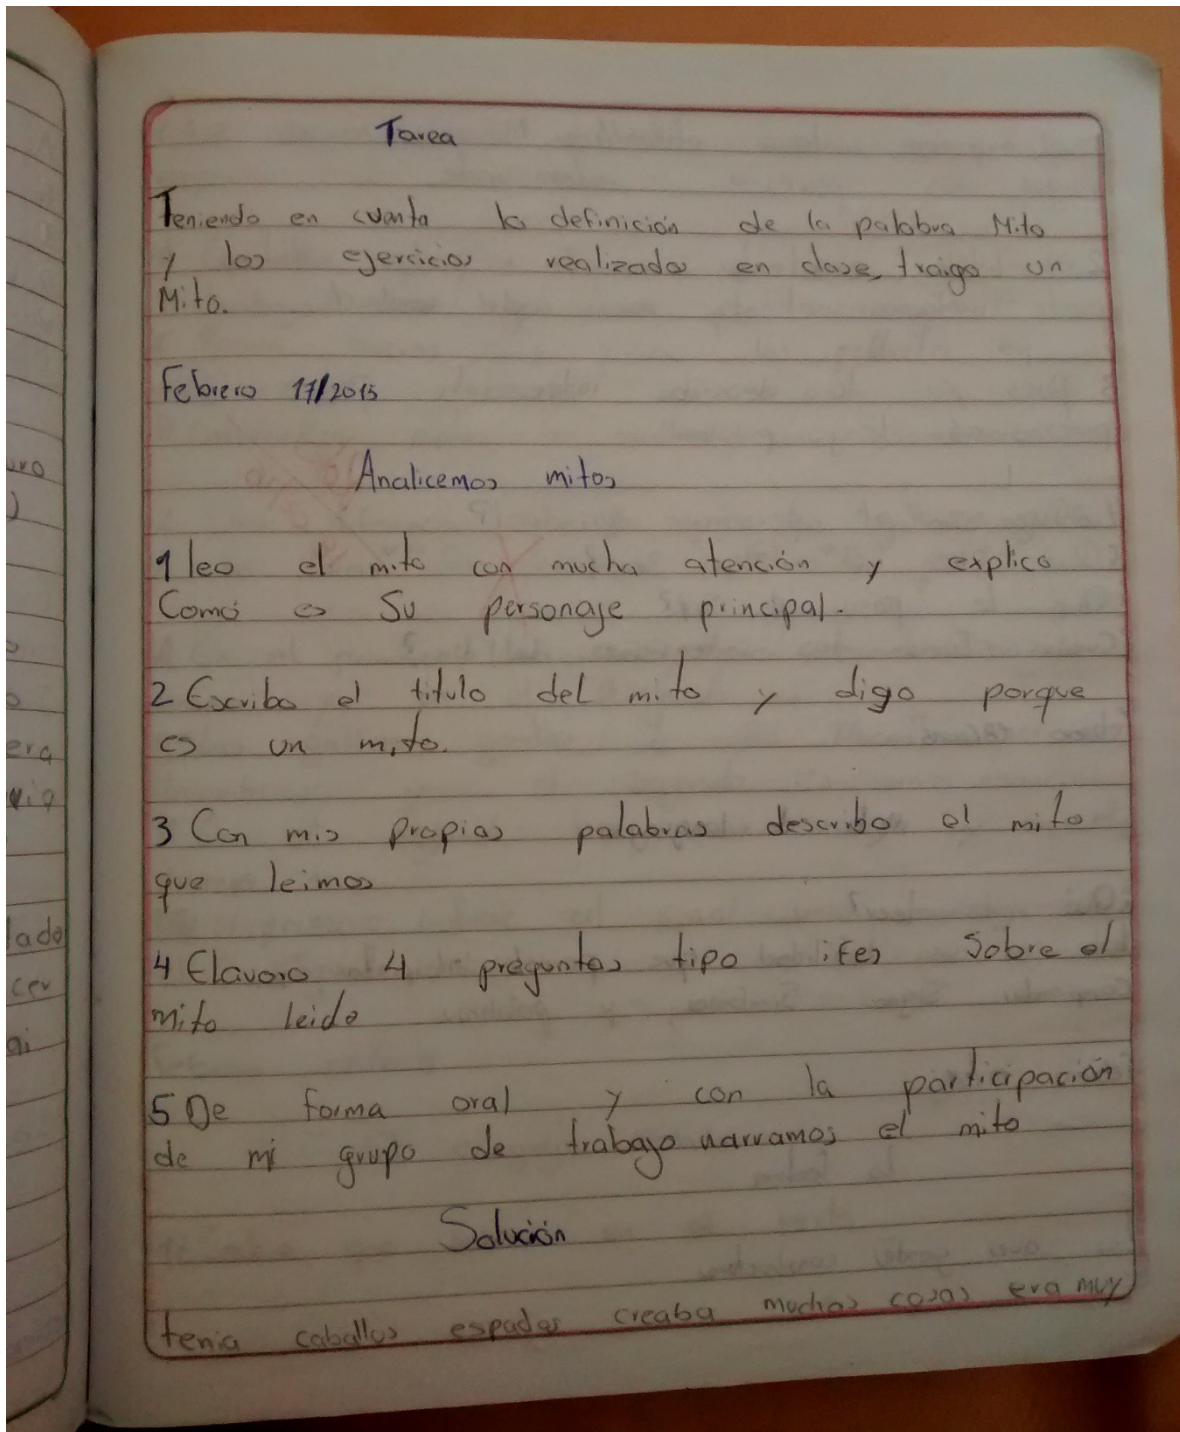 Tarea
Teniendo en cuenta la definición de la palabra Mito
y los ejercicios realizados en clase, traigo un
Mito.
Febrero 17/2015
Analicemos mitos
1 leo el mito con mucha atención y explico
Como es Su personaje principal.
2 Escribo el titulo del mito y digo porque
es un mito.
3 Con mis propias palabras describo el mito
que leimos
4 Elavoro 4 preguntas tipo ifes Sobre el
mito leido
5 De forma oral y con la participación
de mi grupo de trabajo narramos el mito
Solución
tenia caballos espadas creaba muchas cosas era muy
uro
)
era
via
lado
cer
ai